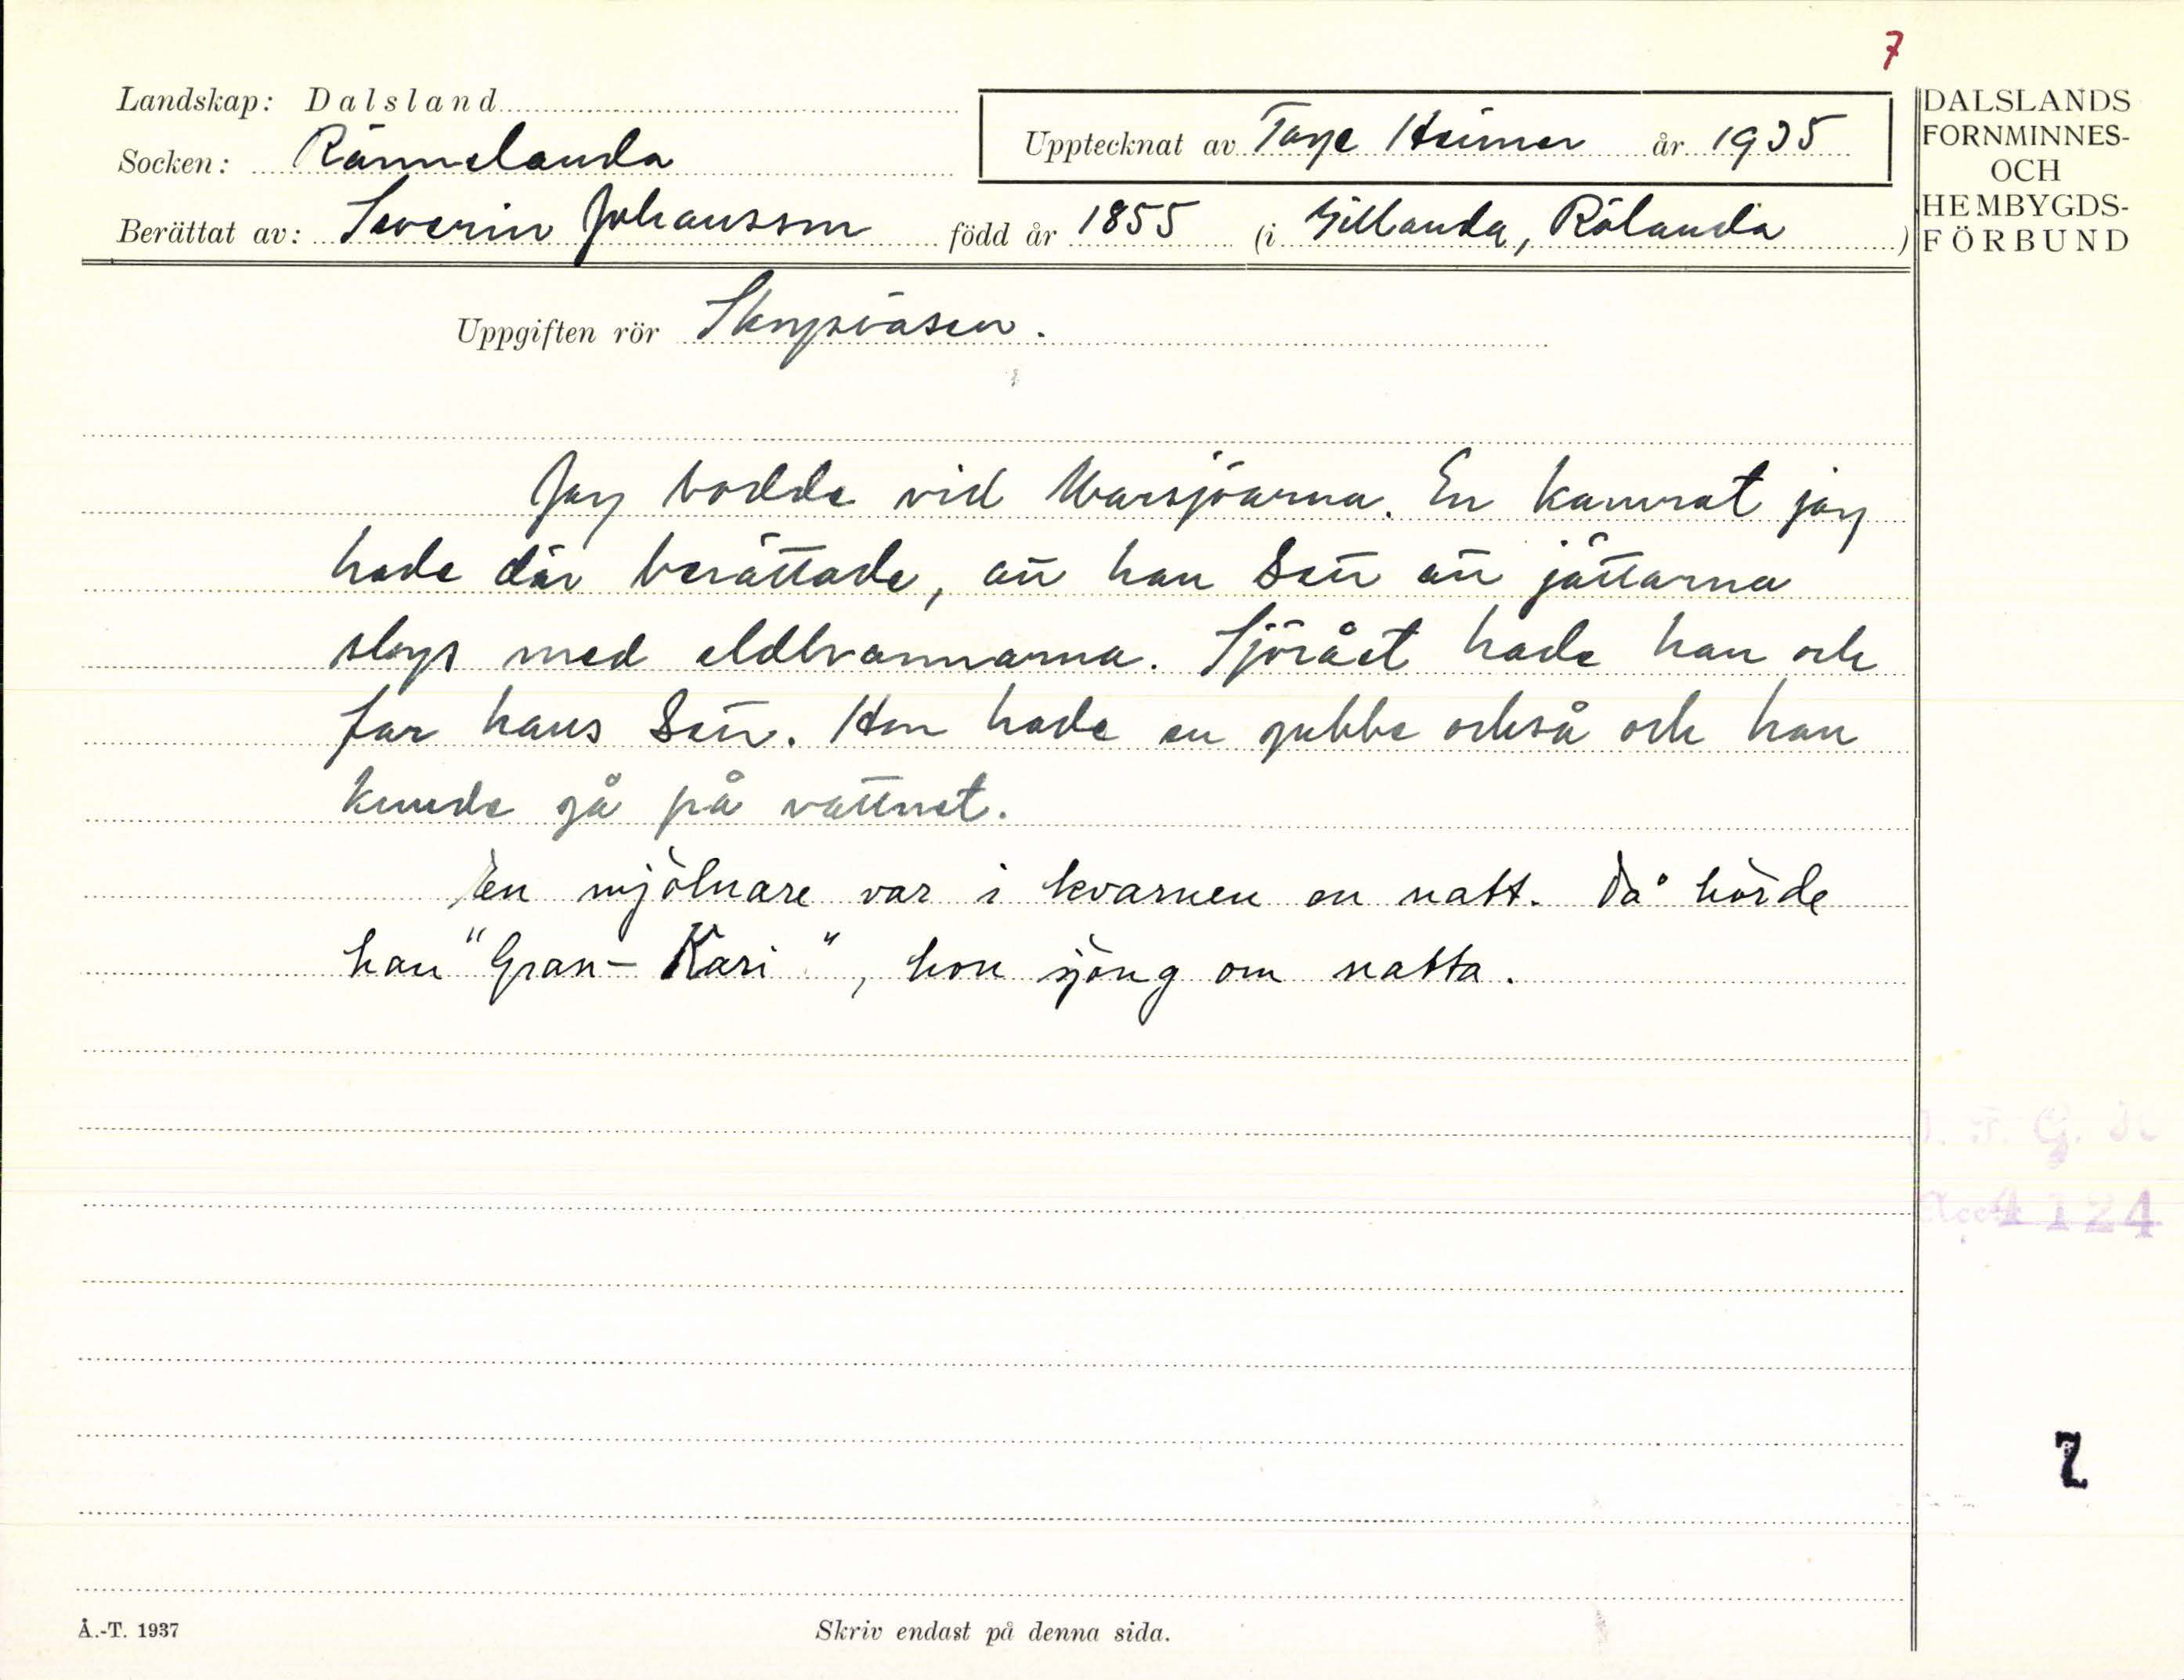 7
Landskap: Dalsland
Upptecknat av Tage Heimer år 1935
Socken: Rännelanda
Berättat av: Severin Johansson född år 1855 (i Gillanda, Rölanda)
DALSLANDS
FORNMINNES-
OCH
HEMBYGDS-
FÖRBUND
Uppgiften rör Skogsväsen.
Jag bodde vid Marsjöarna. En kamrat jag
hade där berättade, att han sett att jättarna
slogs med eldbrannarna. Sjörået hade han och
far hans sett. Hon hade en gubbe också och han
kunde gå på vattnet.
En mjölnare var i kvarnen en natt. Då hörde
han "Gran-Kari", hon sjöng om natta.
4124
7
Å.-T. 1937
Skriv endast på denna sida.